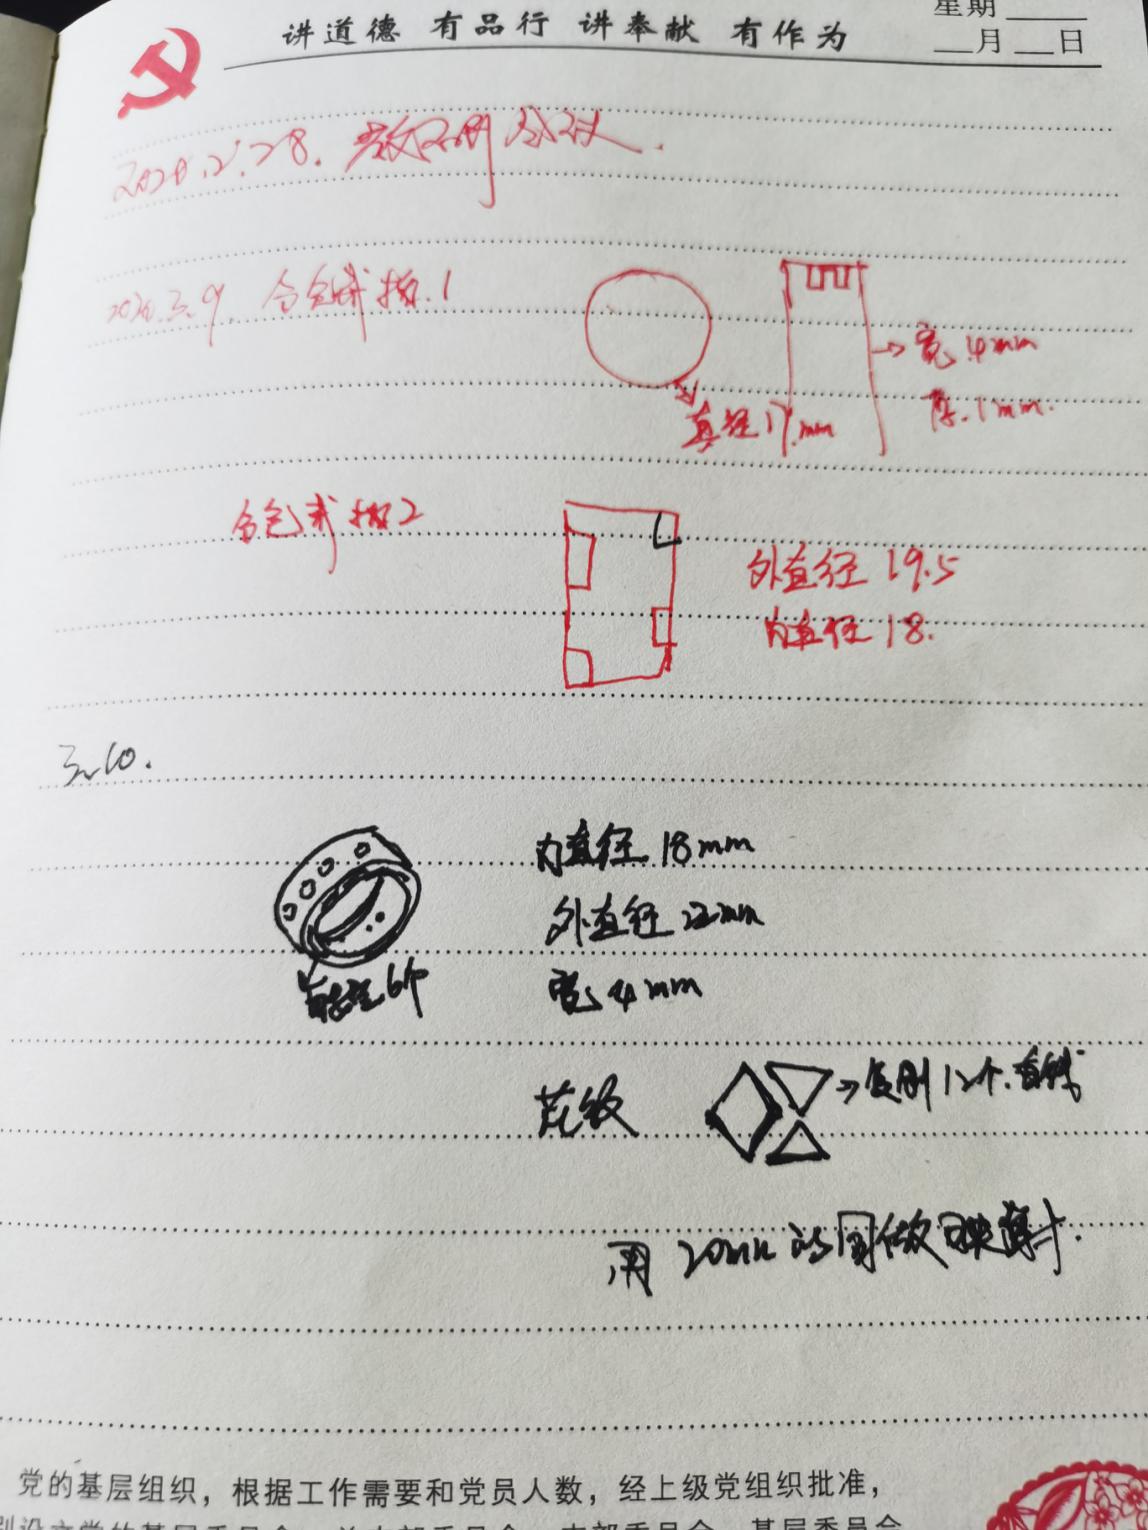 讲道德 有品行 讲奉献 有作为
星期
月 日
2020.2.28.
2020.3.9. 合色戒指.1
宽 4mm
厚.1mm.
直径17.mm
合色戒指2
外直径 19.5
内直径 18.
3.10.
内直径 18mm
外直径 22mm
宽 4mm
6个
花纹
→复制12个.
用 20mm 的圆做映射.
党的基层组织，根据工作需要和党员人数，经上级党组织批准，